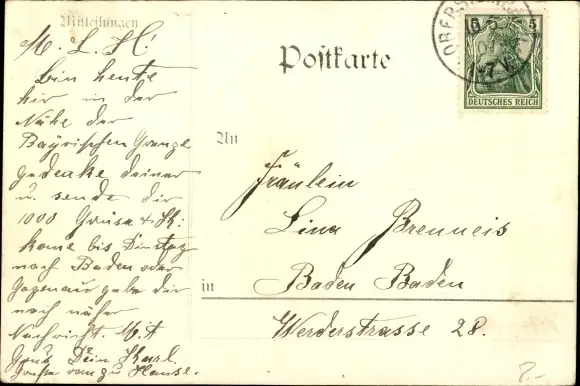 Mitteilungen
M. L. H!
Bin heute
hir in der
Nähe der
Bayrischen Grenze
gedenke deiner
u. sende dir
1000 Grüse + K:
kome bis Dinstag
nach Baden oder
gebe dir
noch näher
Nachricht. Mit
Grus Dein Karl.
zu Hause.
Postkarte
5 5
DEUTSCHES REICH
7 V
An
Fräulein
Lina Brenneis
in Baden Baden
Werderstrasse 28.
8.-